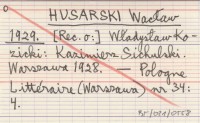 HUSARSKI Wacław
1929. [Rec. o:] Władysław Ko-
zicki: Kazimierz Sichulski.
Warszawa 1928. — Pologne
Littéraire (Warszawa) nr 34:
4.